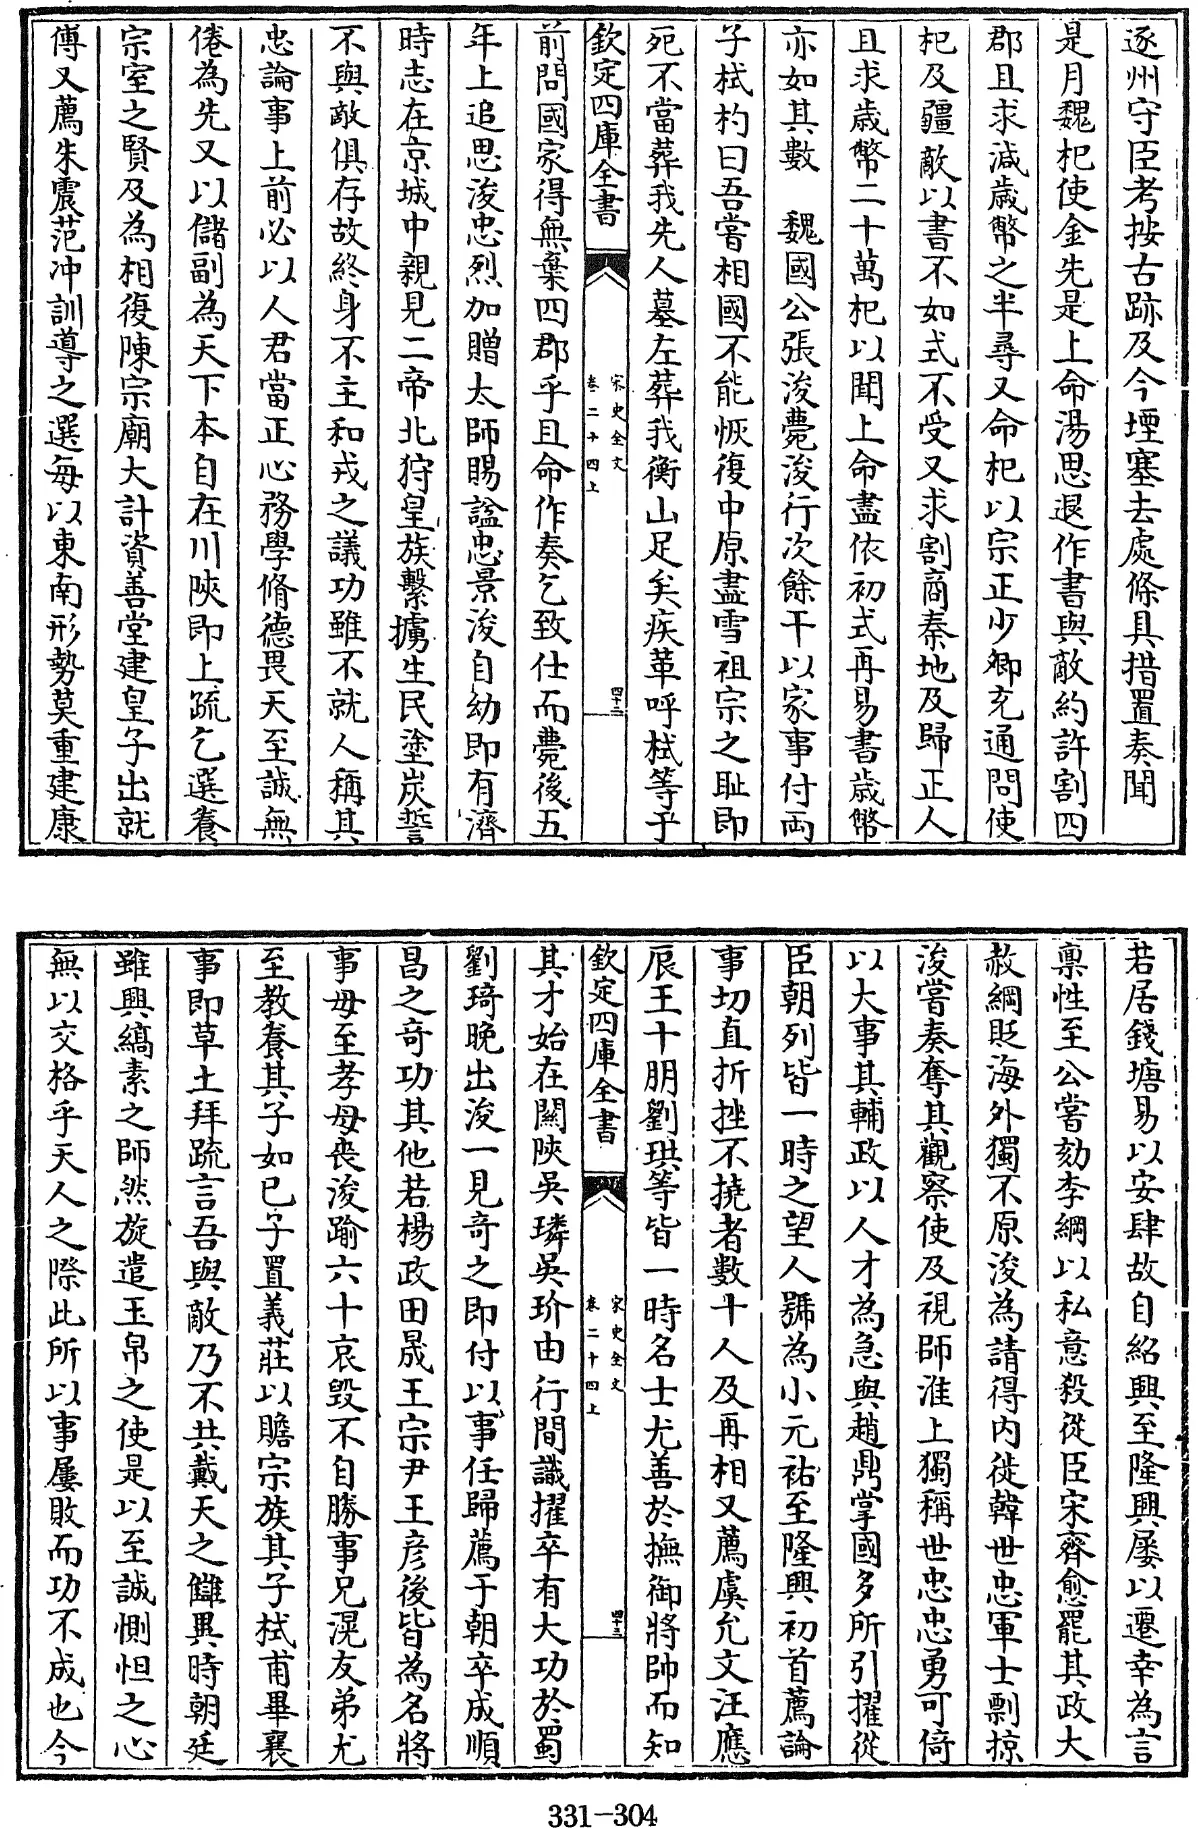 逐州守臣考按古跡及今堙塞去處條具措置奏聞
是月魏杞使金先是上命湯思退作書與敵約許割四
郡且求減歲幣之半尋又命杞以宗正少卿充通問使
杞及疆敵以書不如式不受又求割商秦地及歸正人
且求歲幣二十萬杞以聞上命盡依初式再易書歲幣
亦如其數　魏國公張浚薨浚行次餘干以家事付兩
子栻杓曰吾嘗相國不能恢復中原盡雪祖宗之耻即
死不當葬我先人墓左葬我衡山足矣疾革呼栻等于
欽定四庫全書
宋史全文
卷二十四上
四十二
前問國家得無棄四郡乎且命作奏乞致仕而薨後五
年上追思浚忠烈加贈太師賜諡忠景浚自幼即有濟
時志在京城中親見二帝北狩皇族繫擄生民塗炭誓
不與敵俱存故終身不主和戎之議功雖不就人稱其
忠論事上前必以人君當正心務學脩德畏天至誠無
倦為先又以儲副為天下本自在川陝即上疏乞選養
宗室之賢及為相復陳宗廟大計資善堂建皇子出就
傅又薦朱震范冲訓導之選每以東南形勢莫重建康
若居錢塘易以安肆故自紹興至隆興屢以遷幸為言
稟性至公嘗劾李綱以私意殺從臣宋齊愈罷其政大
赦綱貶海外獨不原浚為請得内徙韓世忠軍士剽掠
浚嘗奏奪其觀察使及視師淮上獨稱世忠忠勇可倚
以大事其輔政以人才為急與趙鼎掌國多所引擢從
臣朝列皆一時之望人號為小元祐至隆興初首薦論
事切直折挫不撓者數十人及再相又薦虞允文汪應
辰王十朋劉珙等皆一時名士尤善於撫御將帥而知
欽定四庫全書
宋史全文
卷二十四上
四十三
其才始在關陝吳璘吳玠由行間識擢卒有大功於蜀
劉琦晚出浚一見奇之即付以事任歸薦于朝卒成順
昌之奇功其他若楊政田晟王宗尹王彦後皆為名將
事母至孝母喪浚踰六十哀毀不自勝事兄滉友弟尤
至教養其子如已子置義莊以贍宗族其子栻甫畢襄
事即草土拜疏言吾與敵乃不共戴天之讎異時朝廷
雖興縞素之師然旋遣玉帛之使是以至誠惻怛之心
無以交格乎天人之際此所以事屢敗而功不成也今
331-304